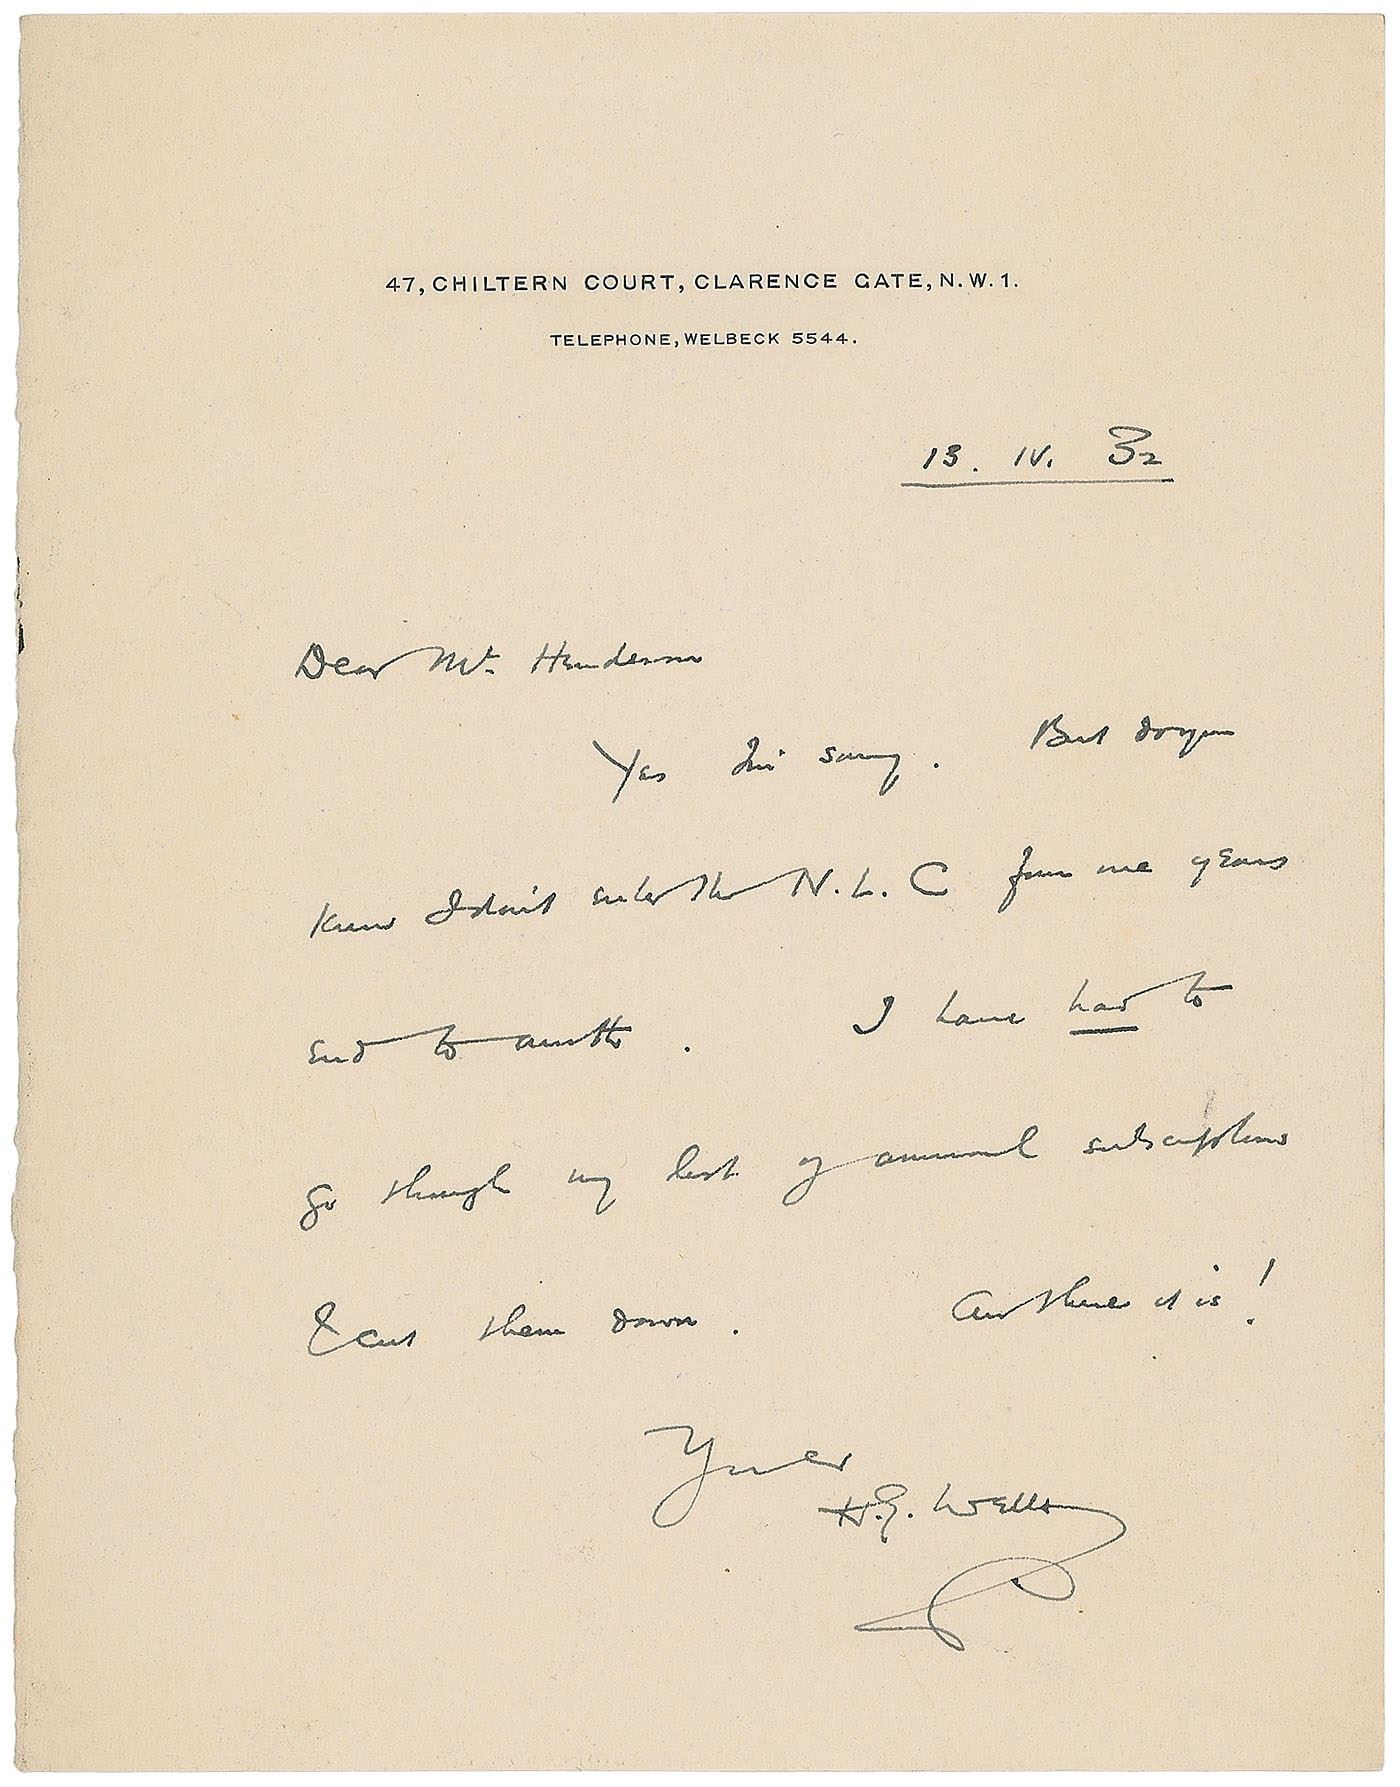 47, CHILTERN COURT, CLARENCE GATE, N.W.1.
TELEPHONE, WELBECK 5544.
13. IV. 32
Dear Mr. Henderson
Yes I'm sorry. But do you
know I don't enter the N. L. C from one years
end to another. I have had to
go through my list of annual subscriptions
& cut them down. And there it is!
Yours
H.G. Wells